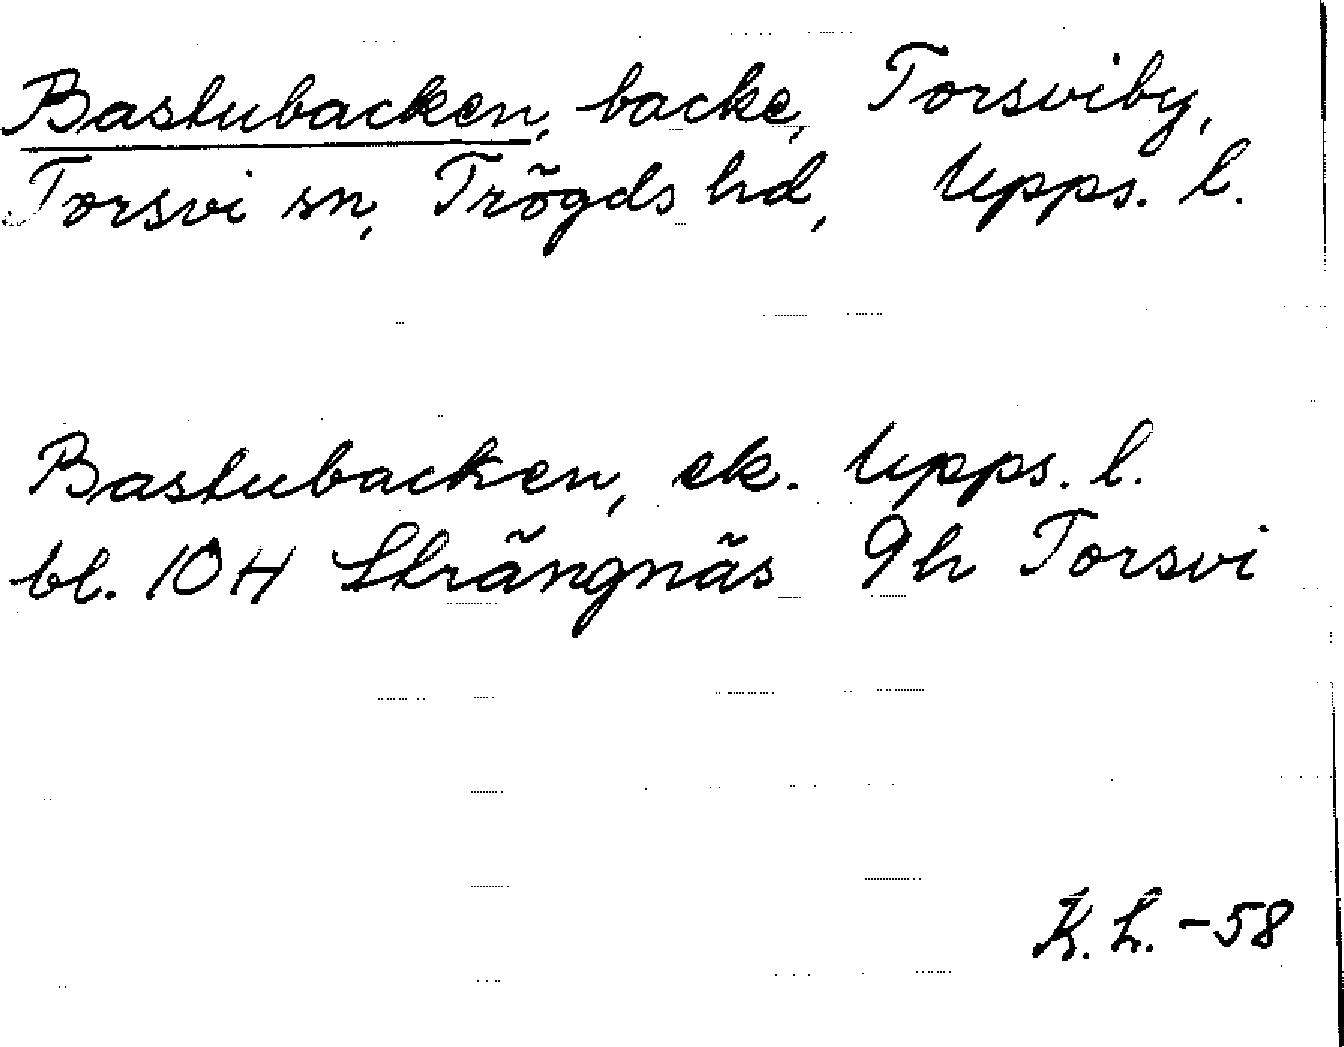 Bastubacken, backe, Torsviby,
Torsvi sn, Trögds hd, Upps. l.
Bastubacken, ek. Upps. l.
bl. 10H Strängnäs 9h Torsvi
K. L. -58